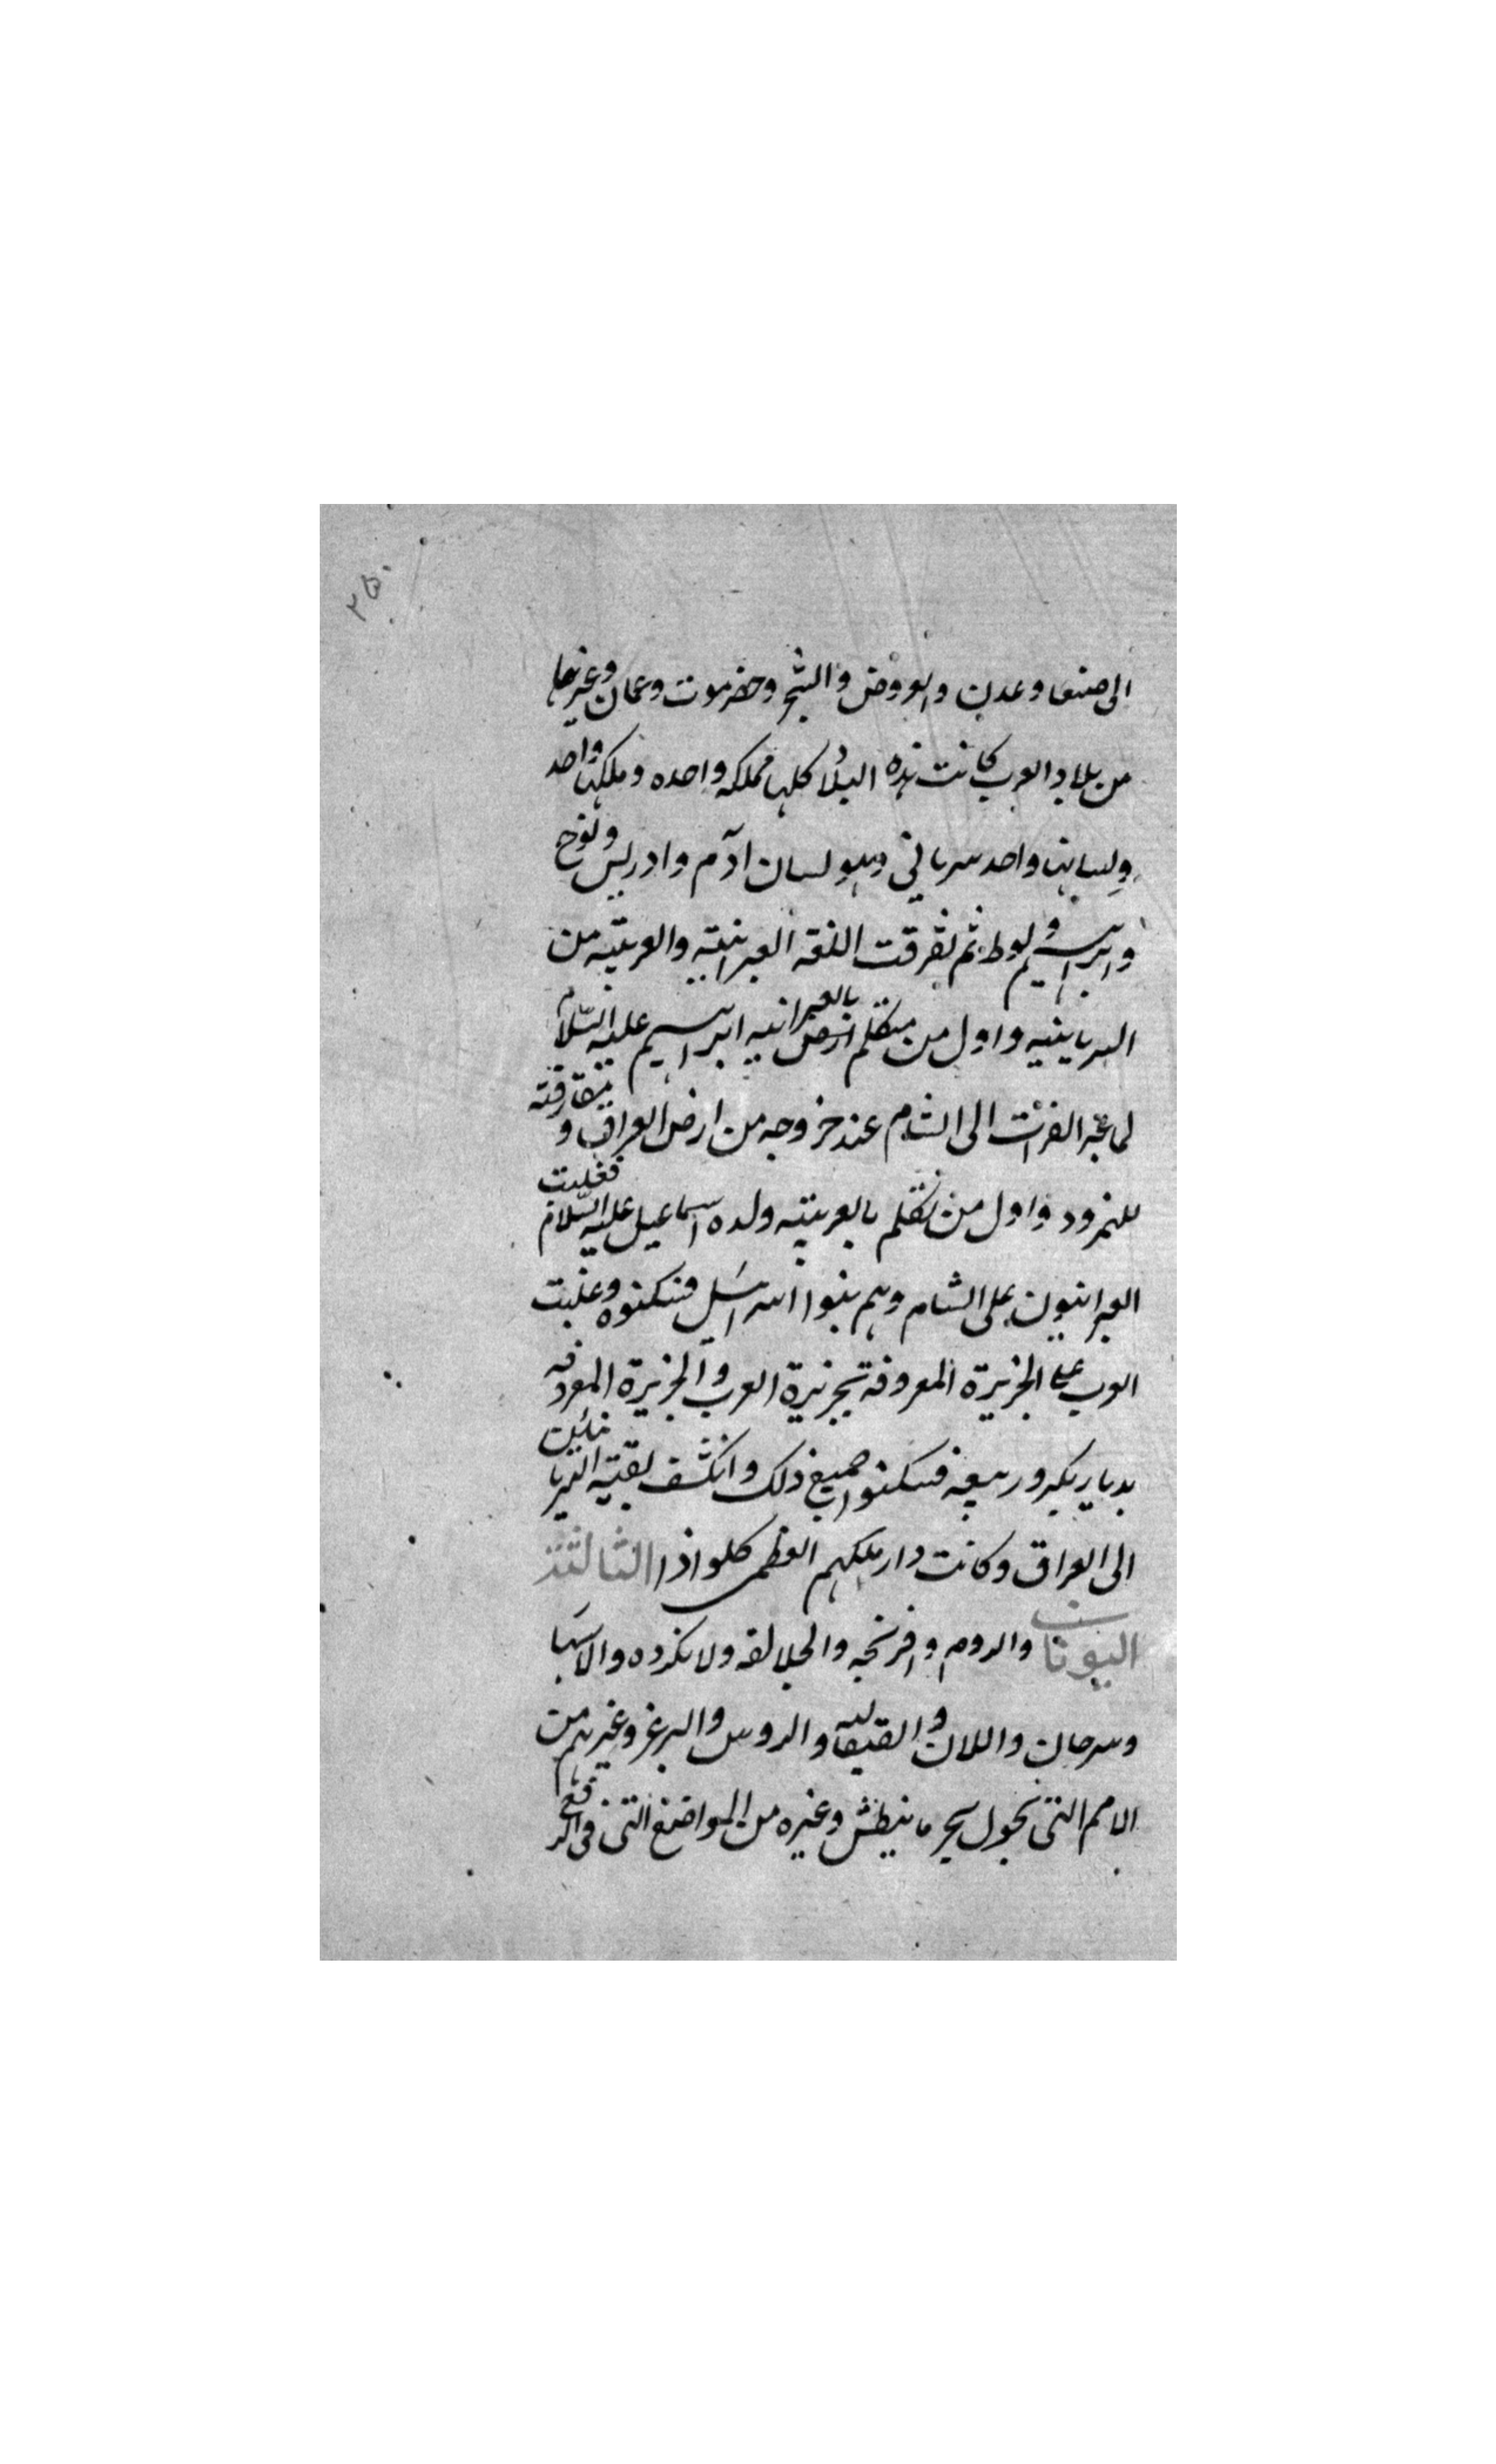 الى صنعا وعدن والعروض والشحر وحضرموت وعمان وغيرها
من بلاد العرب كانت هذه البلاد كلها مملكه واحده وملكها واحد
ولسانها واحد سرياني وهو لسان آدم وادريس ونوح
وابراهيم ولوط ثم تفرقت اللغه العبرانيته والعربيته من
السريانيه واول من تكلم بالعبرانيه ابراهيم عليه السّلام
لما عبر الفرات الى الشام عند خروجه من ارض العراق و مفارقته
للنمرود واول من تكلم بالعربيته ولده اسماعيل عليه السّلام فغلبت
العبرانيون على الشام وهم بنوا اسرائيل فسكنوه وغلبت
العرب على الجزيرة المعروفة بجزيرة العرب والجزيرة المعروفه
بديار بكر وربيعه فسكنوا جميع ذلك وانكشف بقيته السريانيين
الى العراق وكانت دار ملكهم العظمى كلواذا الثالثة
اليونان والروم وافرنجه والجلالقه ولانكرده والاسبا
وسرحان واللان والقيقالبه والروس والبرغر وغيرهم من
الامم التى بحول بحر مانيطش وغيره من المواضع التى فى الربع